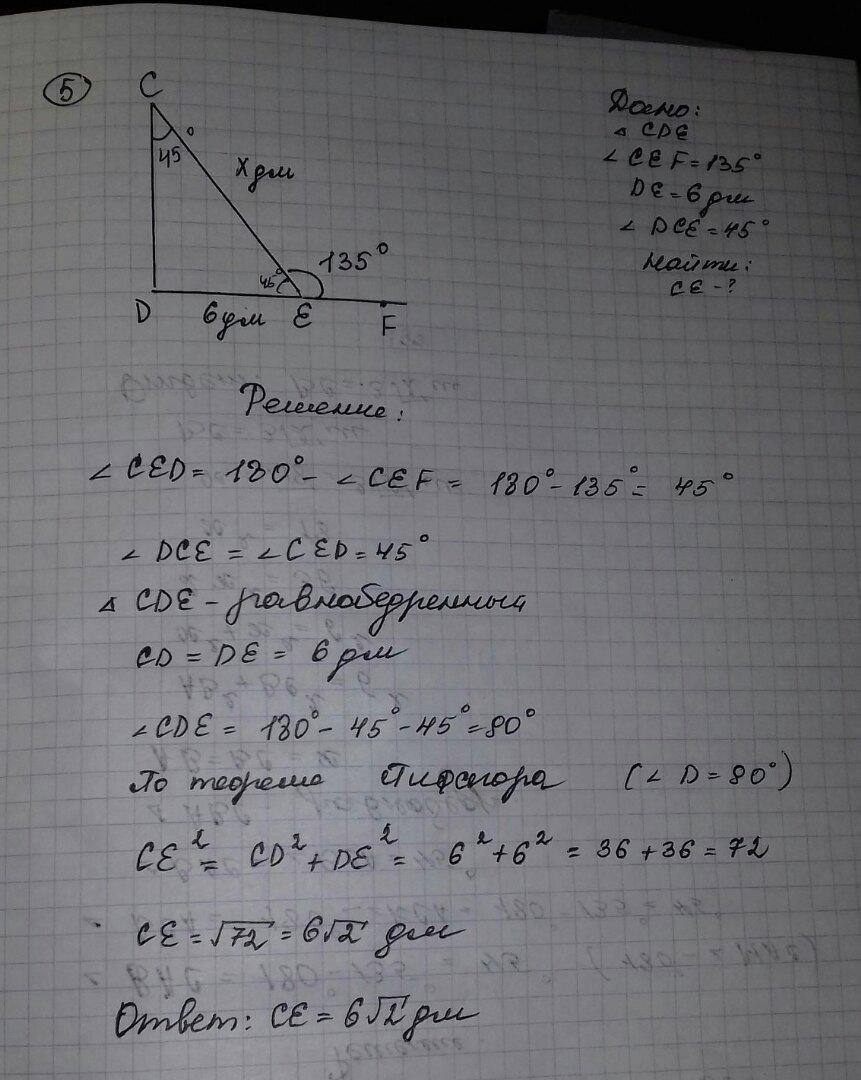 5
C
45°
x дм
45°
135°
D
6 дм
E
F
Дано:
△ CDE
∠ CEF = 135°
DE = 6 дм
∠ DCE = 45°
Найти:
CE - ?
Решение:
∠ CED = 180° - ∠ CEF = 180° - 135° = 45°
∠ DCE = ∠ CED = 45°
△ CDE - равнобедренный
CD = DE = 6 дм
∠CDE = 180° - 45° - 45° = 90°
По теореме Пифагора (∠ D = 90°)
CE² = CD² + DE² = 6² + 6² = 36 + 36 = 72
CE = √72 = 6√2 дм
Ответ: CE = 6√2 дм